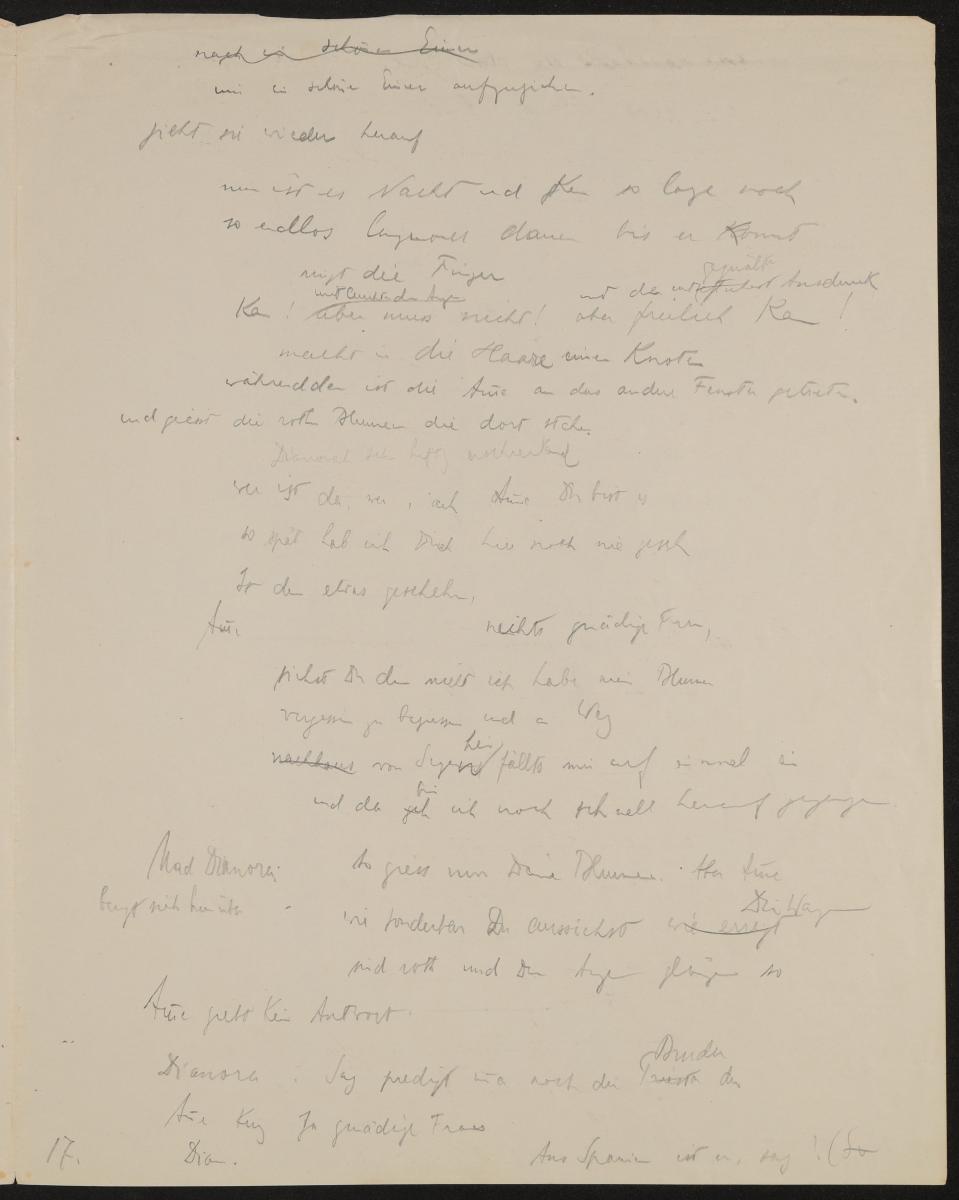 nach ein schöner Eimer
um ein schöner Eimer aufzuziehen.
zieht sie wieder herauf
nun ist es Nacht und kan so lange noch
so endlos lang noch dauern bis er kommt
ringt die Finger
mit leuchtenden Augen
und dem gequälten Ausdruck
Kan! aber muss nicht! aber freilich Kan!
macht in die Haare einen Knoten
währenddem ist die Amme an das andere Fenster getreten.
und giesst die rothen Blumen die dort stehen.
Dianora sich heftig
wer ist da, wer, ach Amme Du bist es
so spät hab ich Dich hier noch nie gesehn
Ist denn etwas geschehn,
Amme nichts gnädige Frau,
siehst Du denn nicht ich habe meine Blumen
vergessen zu begiessen und am Weg
nachhaus von Segen heim fällts mir auf einmal ein
und da geh bin ich noch schnell herauf gegangen.
Mad Dianora: So giess nur Deine Blumen. Aber Amme
beugt sich hinüber
wie sonderbar Du aussiehst wie erregt Dei Wangen
sind roth und Dein Augen glänzen so
Amme giebt kein Antwort.
Dianora: Sag predigt immer noch der Bruder der
Amme kurz Ja gnädige Frau
17. Dian. Aus Spanien ist er, sag! (So